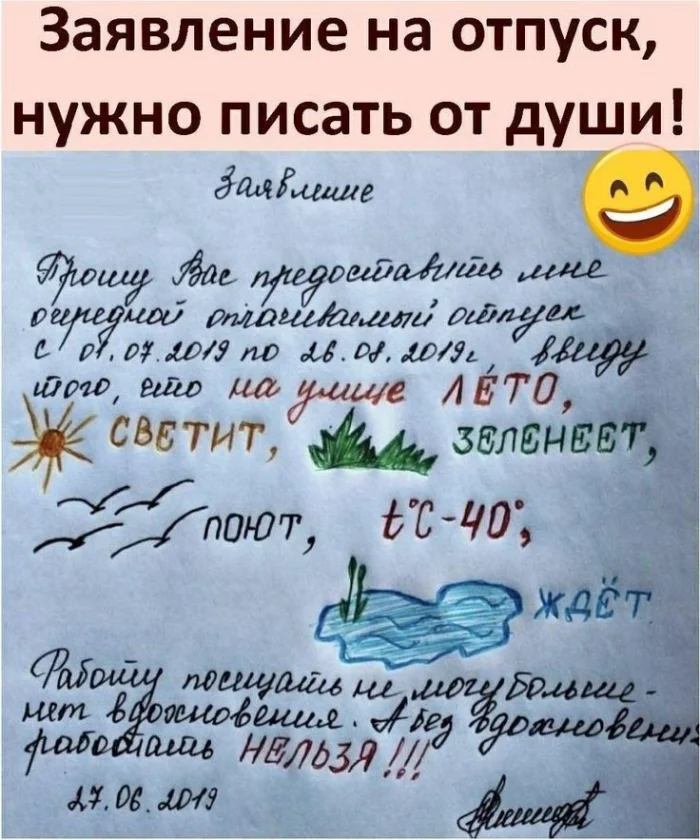 Заявление на отпуск,
нужно писать от души!
Заявление
Прошу Вас предоставить мне
очередной оплачиваемый отпуск
с 01.07.2019 по 26.07.2019г, ввиду
того, что на улице ЛЕТО,
СВЕТИТ, ЗЕЛЕНЕЕТ,
ПОЮТ, t°C-40°,
ЖДЁТ
Работу посещать не могу больше -
нет вдохновения. А без вдохновения
работать НЕЛЬЗЯ!!!
27.06.2019